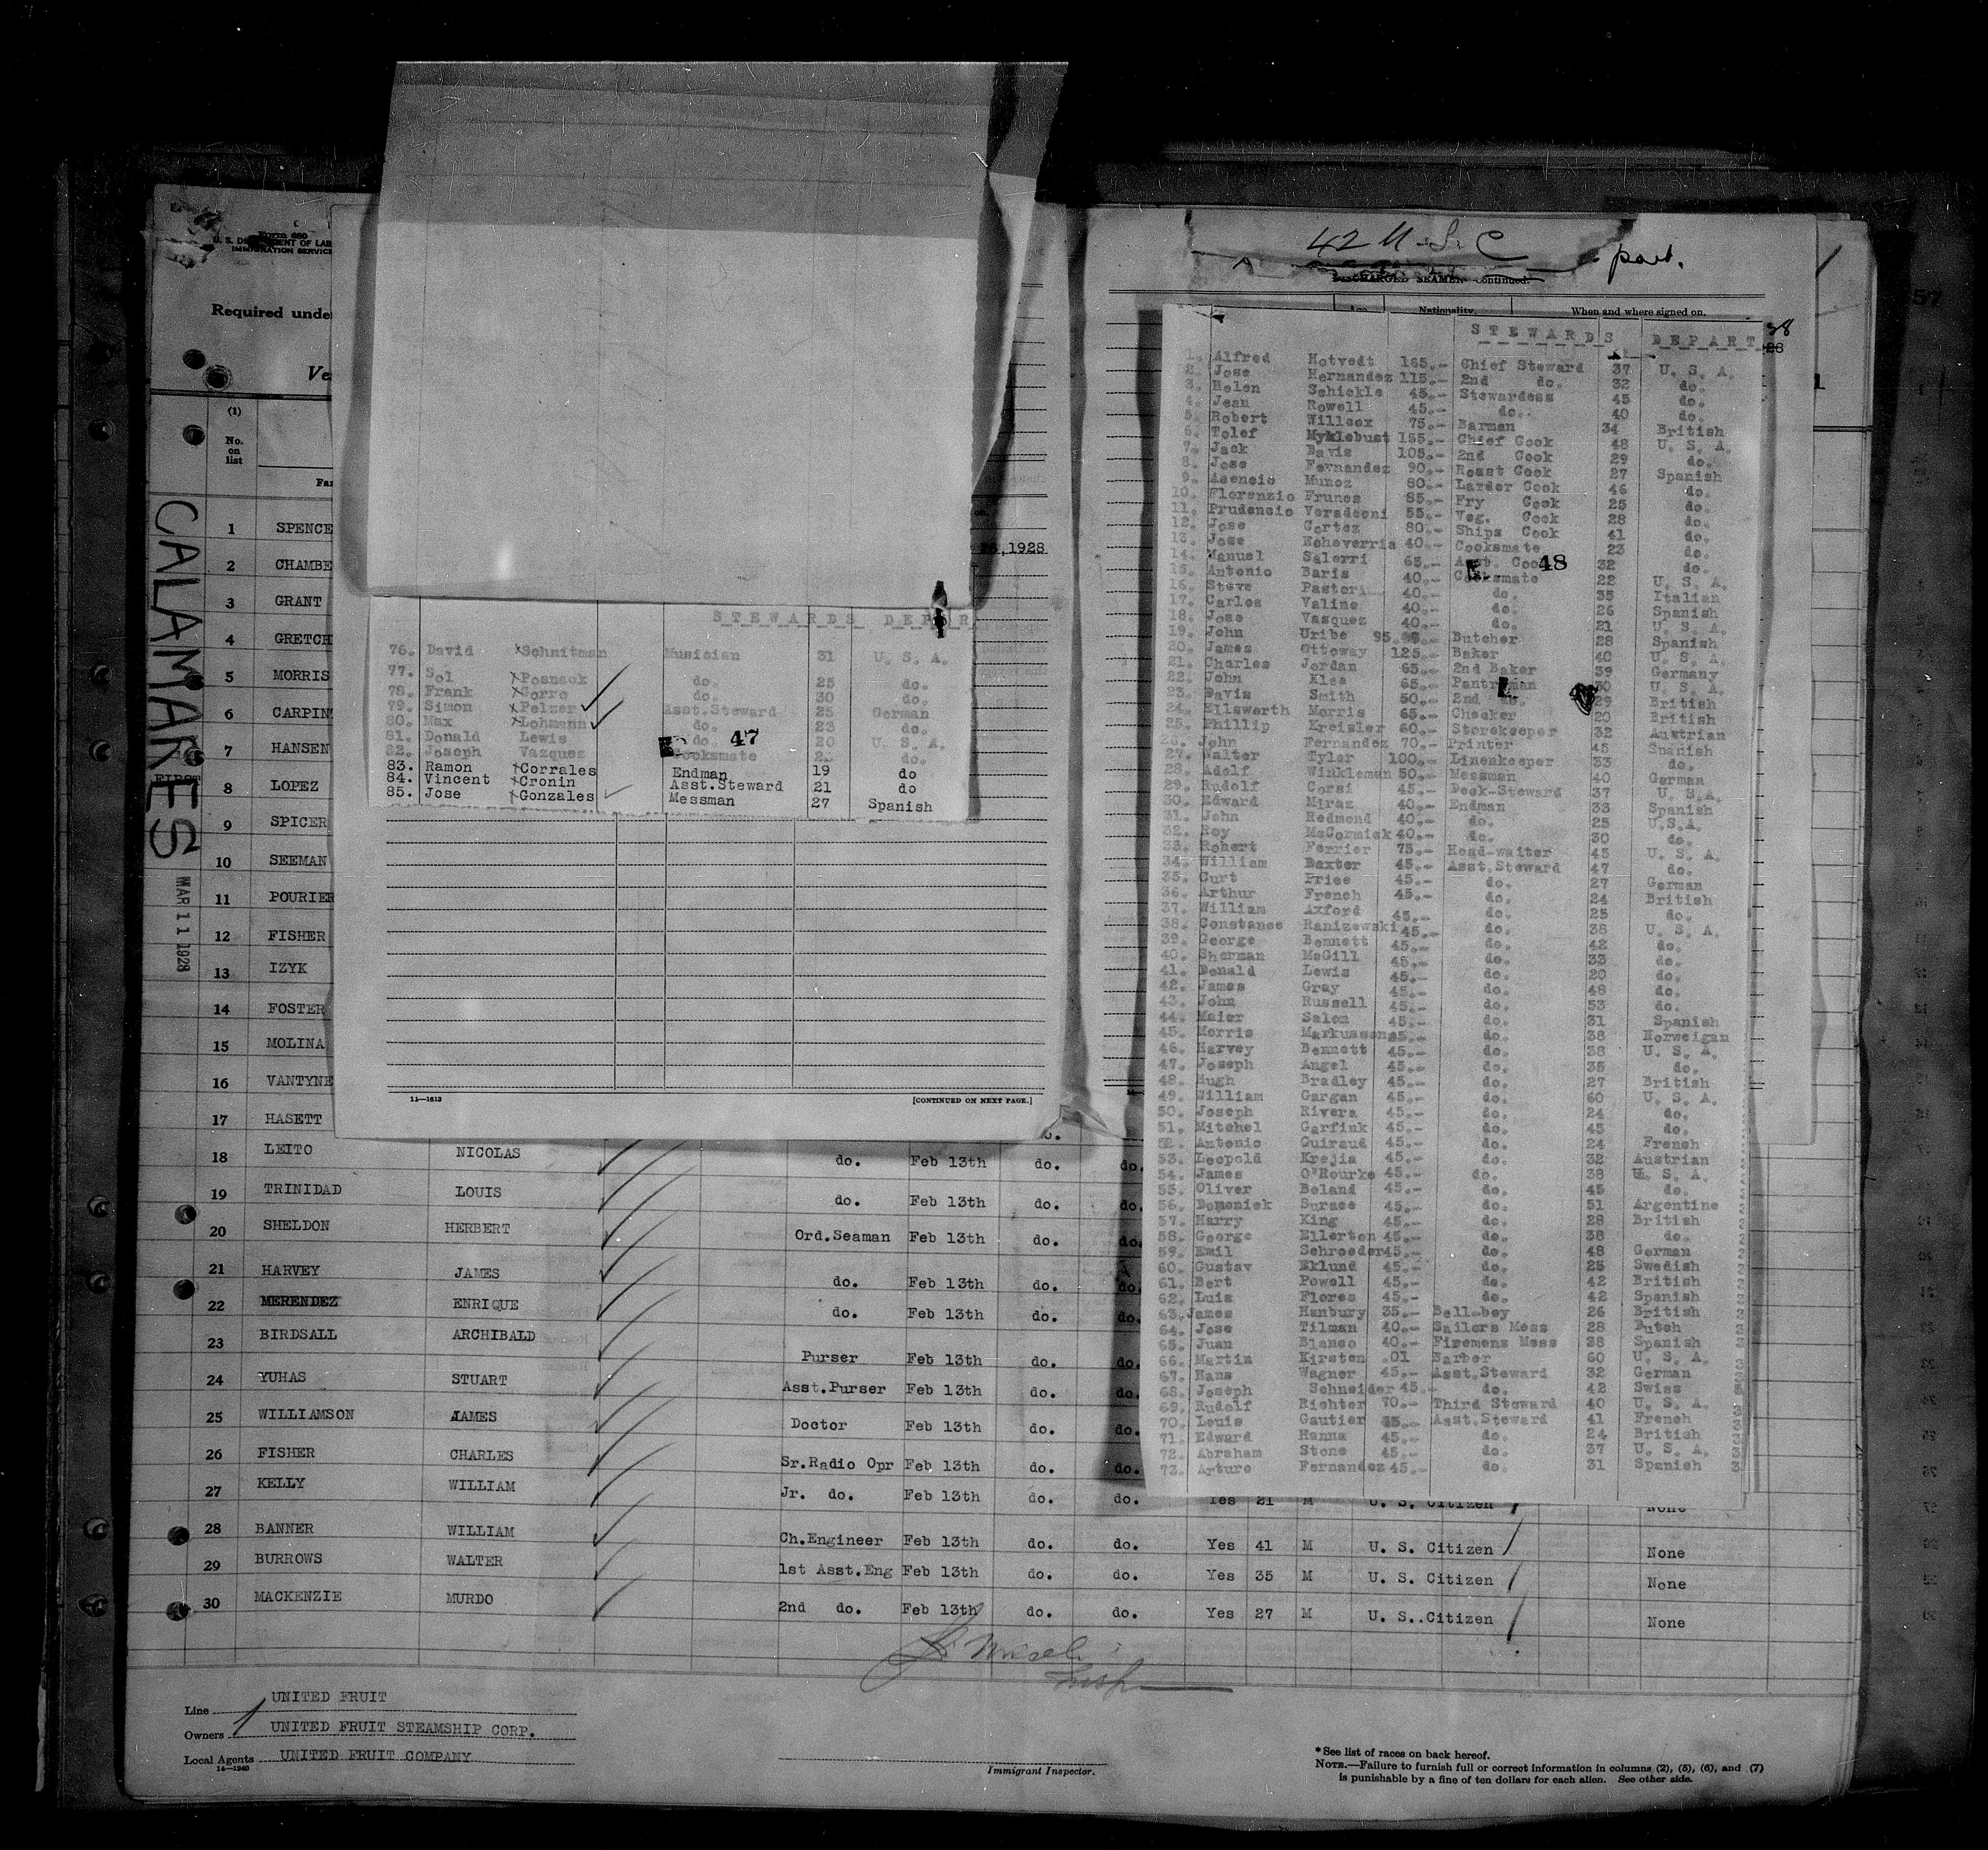 Form 680
U. S. DEPARTMENT OF LAB
IMMIGRATION SERVICE
Required unde
Ve
(1)
No.
on
list
Fa
CALAMARES
FIRST
MAR 11 1928
1 SPENCE
2 CHAMBE
3 GRANT
4 GRETCH
5 MORRIS
6 CARPIN
7 HANSEN
8 LOPEZ
9 SPICER
10 SEEMAN
11 POURIER
12 FISHER
13 IZYK
14 FOSTER
15 MOLINA
16 VANTYNE
17 HASETT
18 LEITO NICOLAS do. Feb 13th do. do.
19 TRINIDAD LOUIS do. Feb 13th do. do.
20 SHELDON HERBERT Ord.Seaman Feb 13th do. do.
21 HARVEY JAMES do. Feb 13th do. do.
22 MERENDEZ ENRIQUE do. Feb 13th do. do.
23 BIRDSALL ARCHIBALD Purser Feb 13th do. do.
24 YUHAS STUART Asst.Purser Feb 13th do. do.
25 WILLIAMSON JAMES Doctor Feb 13th do. do.
26 FISHER CHARLES Sr.Radio Opr Feb 13th do. do.
27 KELLY WILLIAM Jr. do. Feb 13th do. do. Yes 21 M U. S. Citizen None
28 BANNER WILLIAM Ch.Engineer Feb 13th do. do. Yes 41 M U. S. Citizen None
29 BURROWS WALTER 1st Asst.Eng Feb 13th do. do. Yes 35 M U. S. Citizen None
30 MACKENZIE MURDO 2nd do. Feb 13th do. do. Yes 27 M U. S..Citizen None
Line UNITED FRUIT
Owners UNITED FRUIT STEAMSHIP CORP.
Local Agents UNITED FRUIT COMPANY
14—1240
Immigrant Inspector.
*See list of races on back hereof.
NOTE.—Failure to furnish full or correct information in columns (2), (5), (6), and (7)
is punishable by a fine of ten dollars for each alien. See other side.
,1928
STEWARDS DEPAR
76. David Schnitman Musician 31 U. S. A.
77. Sol Posnack do. 25 do.
78. Frank Gorro do. 30 do.
79. Simon Pelzer Asst.Steward 25 German
80. Max Lohmann do. 23 do.
81. Donald Lewis do. 20 U. S. A.
82. Joseph Vazquez Cooksmate do.
47
83. Ramon Corrales Endman 19 do
84. Vincent Cronin Asst.Steward 21 do
85. Jose Gonzales Messman 27 Spanish
11—1613
[CONTINUED ON NEXT PAGE.]
42 U.S.C part.
DISCHARGED SEAMEN—Continued.
Age Nationality. When and where signed on.
STEWARDS DEPART
38
28
1. Alfred Hotvedt 165.- Chief Steward 37 U. S. A.
2. Jose Hernandez 115.- 2nd do. 32 do.
3. Helen Schickle 45.- Stewardess 45 do.
4. Jean Rowell 45.- do. 40 do.
5. Robert Willcox 75.- Barman 34 British
6. Tolef Myklebust 155.- Chief Cook 48 U. S. A.
7. Jack Davis 105.- 2nd Cook 29 do.
8. Jose Fernandez 90.- Roast Cook 27 Spanish
9. Asencio Munoz 80.- Larder Cook 46 do.
10. Florenzio Frunes 85.- Fry Cook 25 do.
11. Prudencio Veradeoni 55.- Veg. Cook 28 do.
12. Jose Cortez 80.- Ships Cook 41 do.
13. Jose Echeverria 40.- Cooksmate 23 do.
14. Manuel Salerri 65.- Asst. Cook 32 do.
48
15. Antonio Baris 40.- Cooksmate 22 U. S. A.
16. Steve Pastori 40.- do. 35 Italian
17. Carlos Valine 40.- do. 26 Spanish
18. Jose Vasquez 40.- do. 21 U. S. A.
19. John Uribe 95. Butcher 28 Spanish
20. James Ottoway 125.- Baker 40 U. S. A.
21. Charles Jordan 65.- 2nd Baker 39 Germany
22. John Klee 65.- Pantryman U. S. A.
23. Davis Smith 50.- 2nd do. 29 British
24. Ellsworth Morris 65.- Checker 20 British
25. Phillip Kreisler 60.- Storekeeper 32 Austrian
26. John Fernandez 70.- Printer 45 Spanish
27. Walter Tyler 100.- Linenkeeper 33 do.
28. Adolf Winkleman 50.- Messman 40 German
29. Rudolf Corsi 45.- Deck-Steward 37 U. S.A.
30. Edward Miraz 40.- Endman 33 Spanish
31. John Redmond 40.- do. 25 U.S.A.
32. Roy McCormick 40.- do. 30 do.
33. Robert Ferrier 75.- Head-waiter 45 U. S. A.
34. William Baxter 45.- Asst.Steward 47 do.
35. Curt Price 45.- do. 27 German
36. Arthur French 45.- do. 24 British
37. William Axford 45.- do. 25 do.
38. Constance Ranizewski 45.- do. 38 U. S. A.
39. George Bennett 45.- do. 42 do.
40. Sherman McGill 45.- do. 33 do.
41. Donald Lewis 45.- do. 20 do.
42. James Gray 45.- do. 48 do.
43. John Russell 45.- do. 53 do.
44. Maier Salon 45.- do. 31 Spanish
45. Morris Markusson 45.- do. 38 Norweigan
46. Harvey Bennett 45.- do. 38 U. S. A.
47. Joseph Angel 45.- do. 35 do.
48. Hugh Bradley 45.- do. 27 British
49. William Gargan 45.- do. 60 U. S. A.
50. Joseph Rivera 45.- do. 24 do.
51. Mitchel Garfink 45.- do. 45 do.
52. Antonio Guiraud 45.- do. 24 French
53. Leopold Krejia 45.- do. 32 Austrian
54. James O'Rourke 45.- do. 38 U. S. A.
55. Oliver Beland 45.- do. 45 do.
56. Domenick Surace 45.- do. 51 Argentine
57. Harry King 45.- do. 28 British
58. George Ellerton 45.- do. 38 do.
59. Emil Schroeder 45.- do. 48 German
60. Gustav Eklund 45.- do. 25 Swedish
61. Bert Powell 45.- do. 42 British
62. Luis Flores 45.- do. 42 Spanish
63. James Hanbury 35.- Bell-boy 26 British
64. Jose Tilman 40.- Sailors Mess 28 Dutch
65. Juan Blanco 40.- Firemens Mess 38 Spanish
66. Martin Kirsten .01 Barber 60 U. S. A.
67. Hans Wagner 45.- Asst.Steward 32 German
68. Joseph Schneider 45.- do. 42 Swiss
69. Rudolf Richter 70.- Third Steward 40 U. S. A.
70. Louis Gautier 45.- Asst.Steward 41 French
71. Edward Hanna 45.- do. 24 British
72. Abraham Stone 45.- do. 37 U. S. A.
73. Arturo Fernandez 45.- do. 31 Spanish